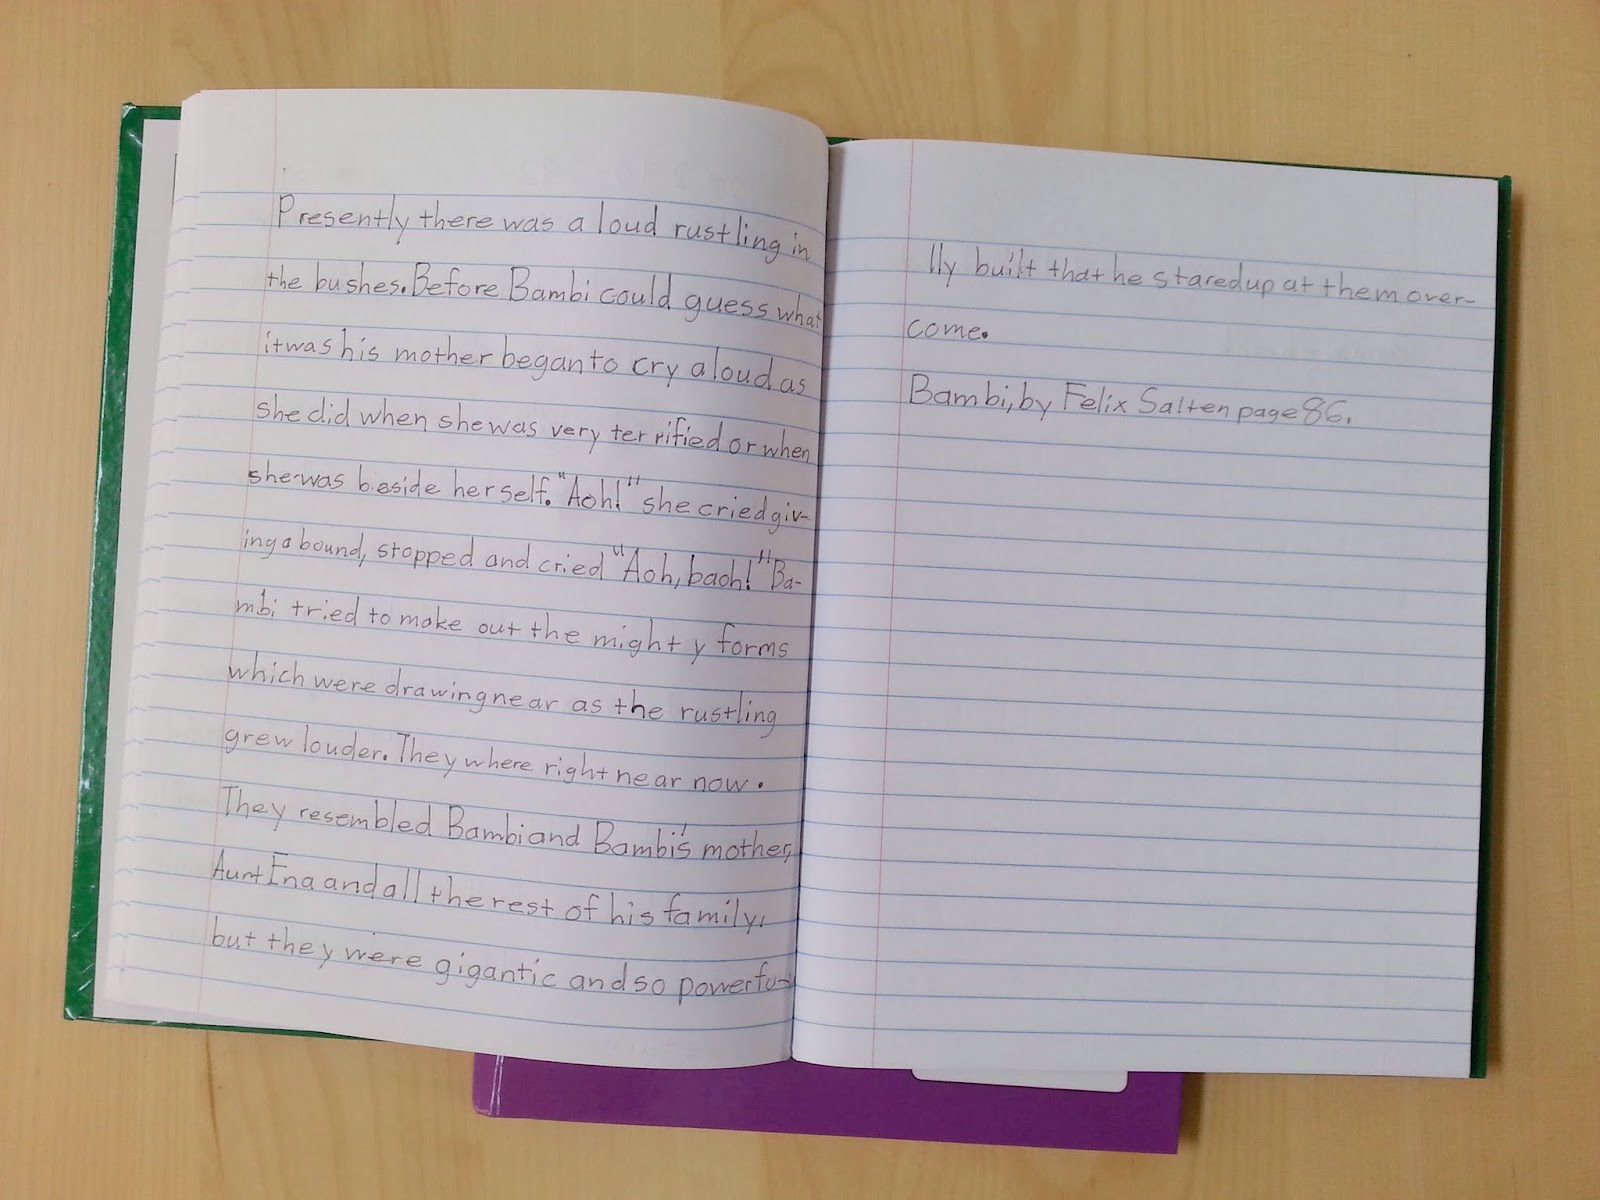 Presently there was a loud rustling in
the bushes. Before Bambi could guess what
it was his mother began to cry aloud as
she did when she was very terrified or when
she was beside herself. "Aoh!" she cried giv-
ing a bound, stopped and cried "Aoh, baoh!" Ba-
mbi tried to make out the mighty forms
which were drawing near as the rustling
grew louder. They where right near now.
They resembled Bambi and Bambi's mother,
Aunt Ena and all the rest of his family,
but they were gigantic and so powerfu-
lly built that he stared up at them over-
come.
Bambi, by Felix Salten page 86.